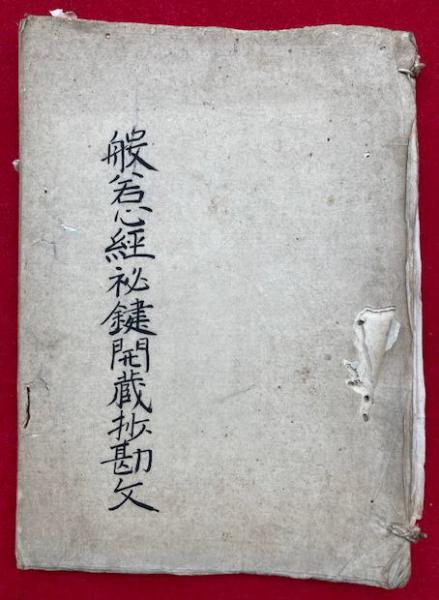 般若心経秘鍵開蔵抄勘文